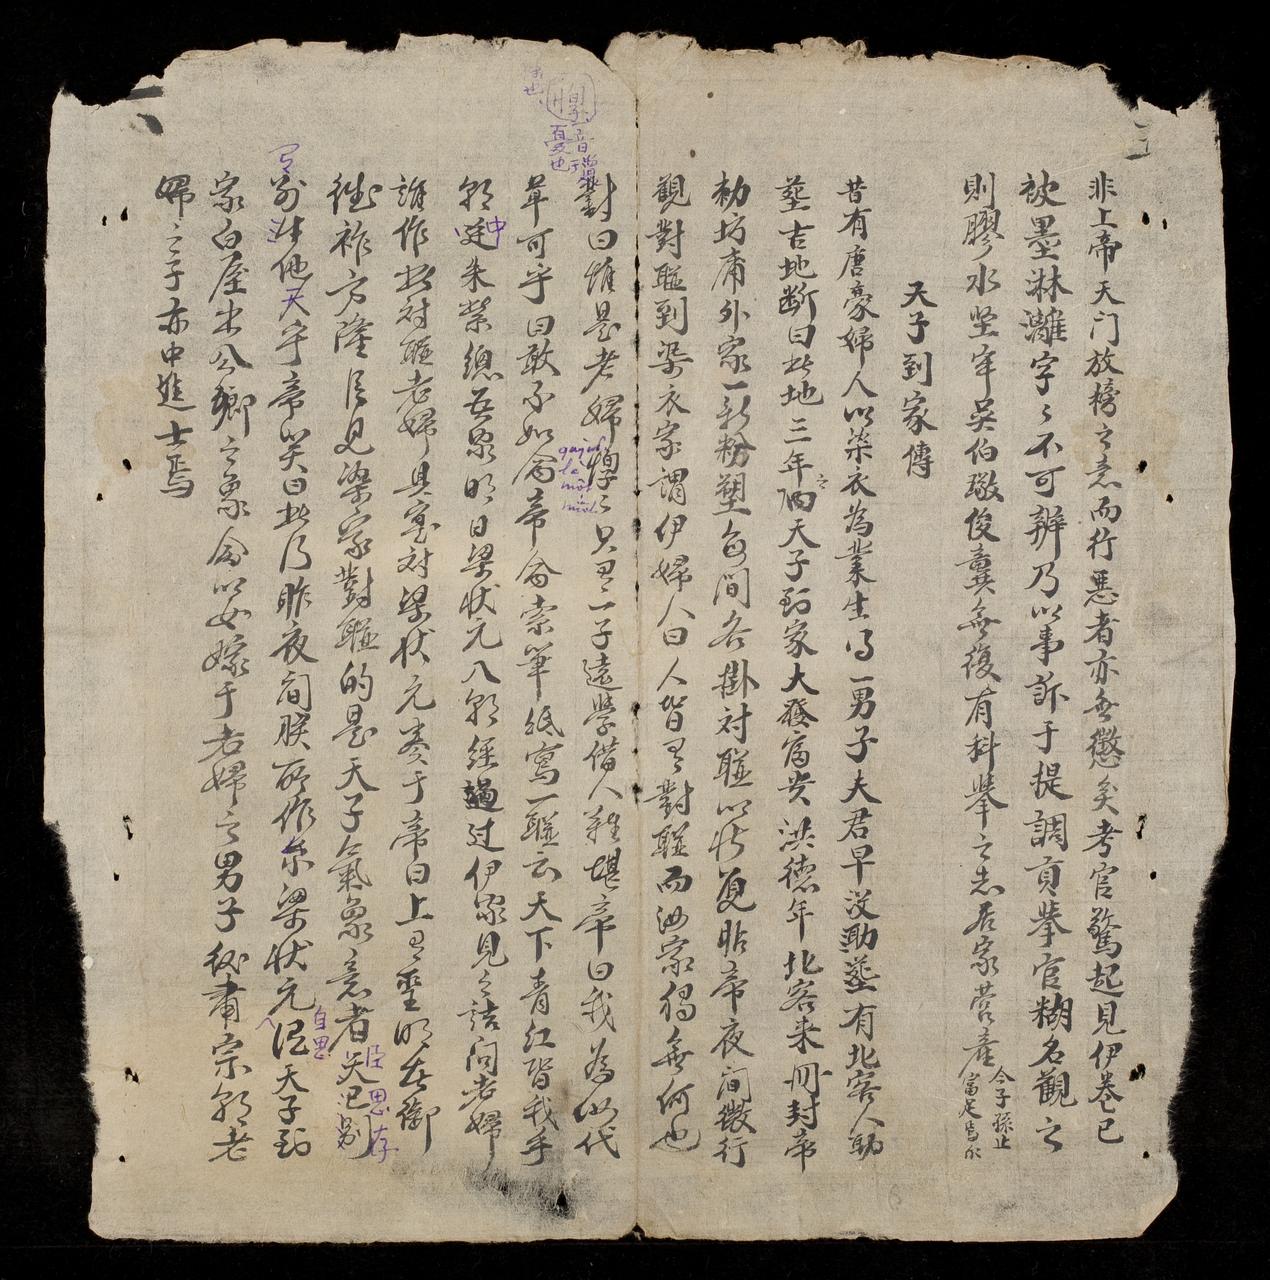 非上帝天门放榜之意而行悪者亦无懲矣考官驚起見伊巻已
被墨淋灕字〻不可辨乃以事訴于提調貢举官糊名觀之
則膠水坚牢吳伯璥俊兾無復有科举之志居家营産
今子孫止
富足焉爾
天子到家傳
昔有唐豪婦人以染衣為業生得一男子夫君早没勛塟有北客人助
塟古地断曰此地三年之后天子到家大發富贵洪德年北客来冊封帝
勅坊庸外家一新粉塑每間各掛对聮以
帝夜间微行
觀對聮到染衣家謂伊婦人曰人皆有對聮而汝家獨無何也
對曰惟是老婦惸〻只有一子遠學借人難堪帝曰我為汝代
草可乎曰敢不如命帝命索筆紙寫一聮云天下青红皆我手
朝廷朱紫總吾家明日梁状元入朝經過过伊家見之詰问老婦
誰作此对聮老婦具宴对梁状元奏于帝曰上有聖明在御
徳祚方隆臣見染家對聮的是天子氣象意者天已别
有别
他天乎帝笑曰此乃昨夜间朕所作尔梁状元
天子到
家白屋出公卿之象命以女嫁于老婦之男子後肅宗朝老
婦之子亦中進士焉
惸
音
憂也
中
quạnh
là
một
mình
臣思存
自思
天